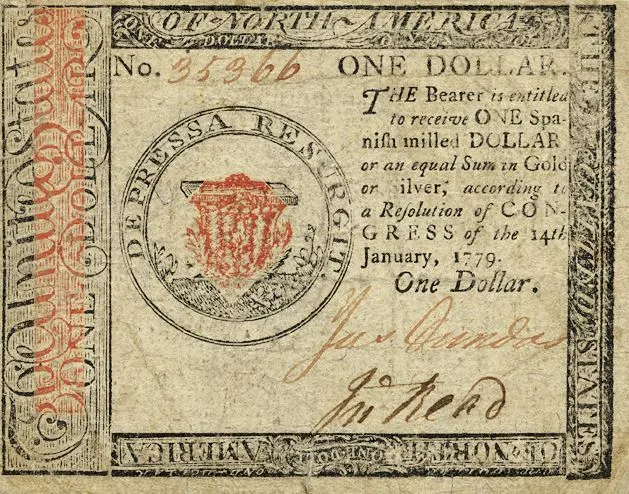 OF NORTH AMERICA
ONE DOLLAR
No. 35366 ONE DOLLAR.
THE Bearer is entitled
to receive ONE Spa-
niſh milled DOLLAR
or an equal Sum in Gold
or Silver, according to
a Reſolution of CON-
GRESS of the 14th
January, 1779.
One Dollar.
DEPRESSA RESURGIT.
Jas Dundas
Jno Read
United States
ONE DOLLAR
THE UNITED STATES
OF NORTH AMERICA